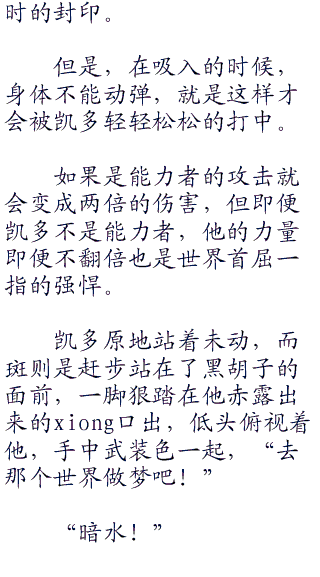 时的封印。
但是，在吸入的时候，
身体不能动弹，就是这样才
会被凯多轻轻松松的打中。
如果是能力者的攻击就
会变成两倍的伤害，但即便
凯多不是能力者，他的力量
即便不翻倍也是世界首屈一
指的强悍。
凯多原地站着未动，而
斑则是赶步站在了黑胡子的
面前，一脚狠踏在他赤露出
来的xiong口出，低头俯视着
他，手中武装色一起，“去
那个世界做梦吧！”
“暗水！”